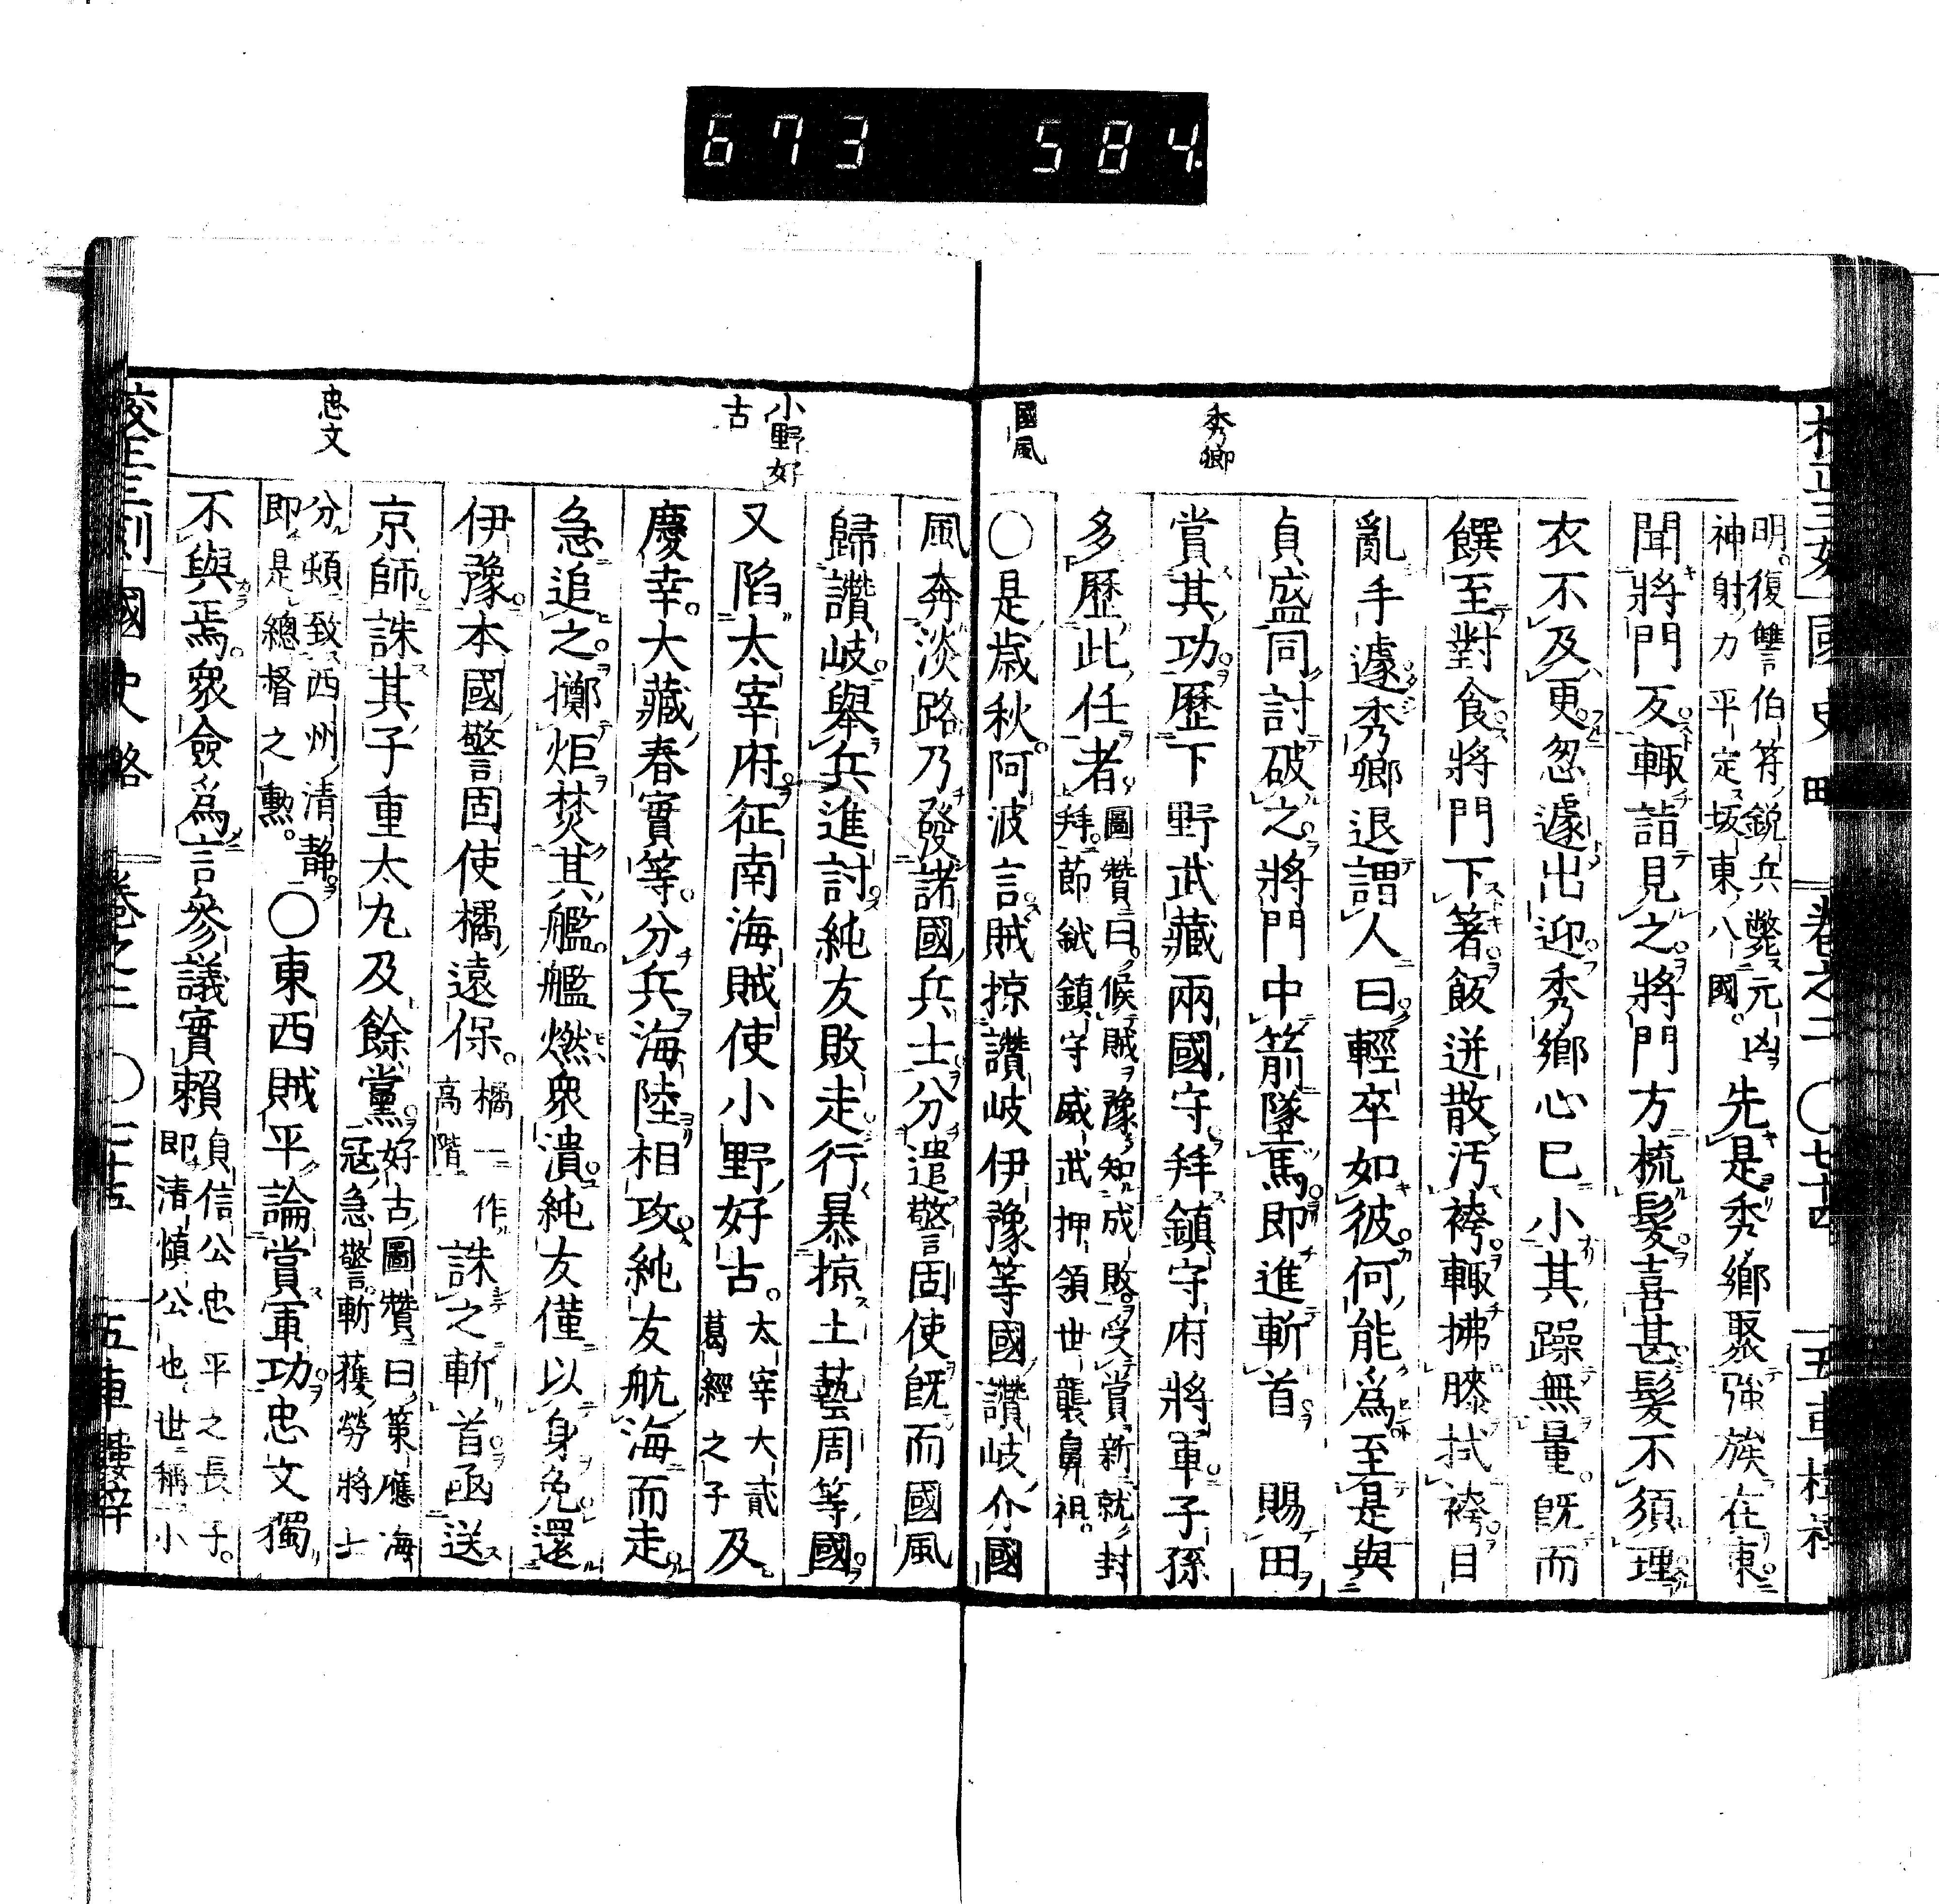 673 584
國史略 卷之二 〇七十四 五車樓梓
明。復讐伯符。鋭兵斃元凶
神射力平定坂東八國。
先是秀鄉聚強族在東
聞將門反輙詣見之將門方梳髮喜甚髮不須理
衣不及更忽遽出迎秀鄉心已小其躁無量。既而
饌至對食將門下箸飯迸散汚袴輙拂膝拭袴目
亂手遽秀鄉退謂人曰輕卒如彼何能爲至是與
貞盛同討破之將門中箭墜馬即進斬首 賜田
賞其功歷下野武藏兩國守拜鎮守府將軍子孫
多歷此任者
圖贊曰候賊豫知成敗受賞新就封
拜節鉞鎮守威武押領世襲鼻祖。
〇是歲秋阿波言賊掠讚岐伊豫等國讚岐介國
秀鄉
國風
風奔淡路乃發諸國兵士分遣警固使既而國風
歸讚岐舉兵進討純友敗走行暴掠土藝周等國
又陷太宰府征南海賊使小野好古。
太宰大貳
葛經之子
及
慶幸。大藏春實等。分兵海陸相攻純友航海而走
急追之擲炬焚其艦。艦燃衆潰純友僅以身免還
伊豫。本國警固使橘遠保。
橘一作
高階
誅之斬首函送
京師誅其子重太丸及餘黨
好古圖贊曰策應海
冦急警。斬獲勞將士
分頼致西州清靜
即是總督之勲。
〇東西賊平論賞軍功忠文獨
不與焉。衆僉爲言參議實賴
貞信公忠平之長子。
即清慎公也世稱小
小野好古
忠文
校正三刻 國史略 卷之二 〇 五車樓梓